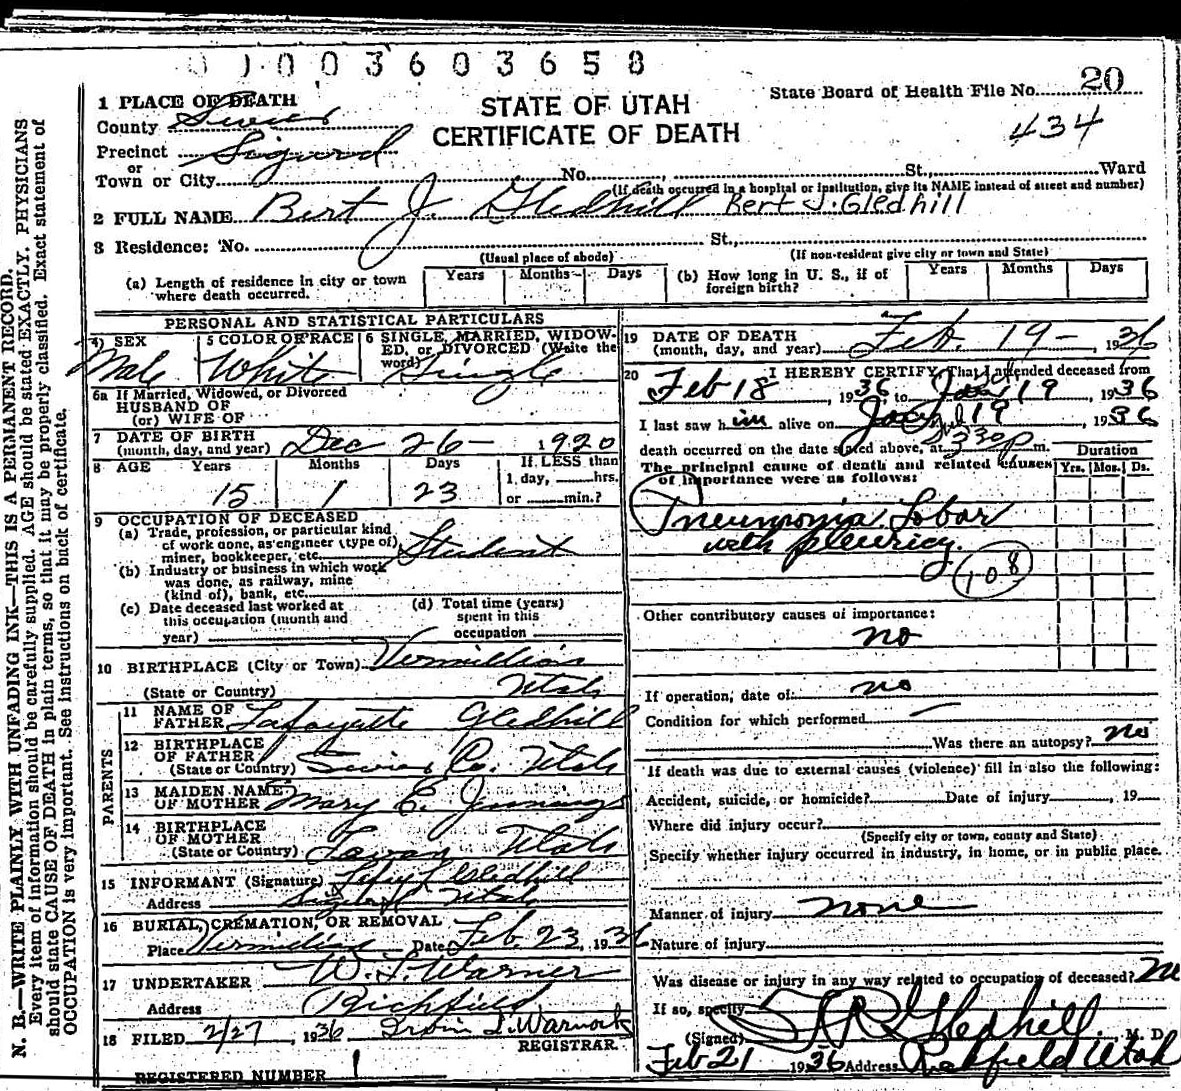 0 1 0 0 3 6 0 3 6 5 8
1 PLACE OF DEATH
County Sevier
STATE OF UTAH
CERTIFICATE OF DEATH
State Board of Health File No. 20
434
Precinct Sigurd
or
Town or City No. St., Ward
(If death occurred in a hospital or institution, give its NAME instead of street and number)
2 FULL NAME Bert J. Gledhill Bert J. Gledhill
3 Residence: No. St.,
(Usual place of abode) (If non-resident give city or town and State)
(a) Length of residence in city or town where death occurred. Years Months Days
(b) How long in U. S., if of foreign birth? Years Months Days
PERSONAL AND STATISTICAL PARTICULARS
4 SEX Male
5 COLOR OR RACE White
6 SINGLE, MARRIED, WIDOWED, or DIVORCED (Write the word) Single
6a If Married, Widowed, or Divorced
HUSBAND OF
(or) WIFE OF
7 DATE OF BIRTH
(month, day, and year) Dec 26 - 1920
8 AGE Years Months Days If LESS than
15 1 23 1 day, hrs.
or min.?
9 OCCUPATION OF DECEASED
(a) Trade, profession, or particular kind
of work done, as engineer (type of)
miner, bookkeeper, etc. Student
(b) Industry or business in which work
was done, as railway, mine
(kind of), bank, etc.
(c) Date deceased last worked at
this occupation (month and
year)
(d) Total time (years)
spent in this
occupation
10 BIRTHPLACE (City or Town) Vermillion
(State or Country) Utah
PARENTS
11 NAME OF
FATHER Lafayette Gledhill
12 BIRTHPLACE
OF FATHER
(State or Country) Sevier Co. Utah
13 MAIDEN NAME
OF MOTHER Mary E. Jennings
14 BIRTHPLACE
OF MOTHER
(State or Country) Utah
15 INFORMANT (Signature) Gledhill
Address Utah
16 BURIAL, CREMATION, OR REMOVAL
Place Vermillion Date Feb. 23, 1936
17 UNDERTAKER W. L. Warner
Address Richfield
18 FILED 2/27, 1936 Irvin L. Warnock
REGISTRAR.
REGISTERED NUMBER 1
19 DATE OF DEATH
(month, day, and year) Feb. 19 - 1936
20 I HEREBY CERTIFY, That I attended deceased from
Feb 18, 1936 to 19, 1936
I last saw him alive on 19, 1936
death occurred on the date stated above, at 330 p m.
The principal cause of death and related causes
of importance were as follows:
Duration
Yrs. Mos. Ds.
Pneumonia Lobar
with pleuricy.
108
Other contributory causes of importance:
no
If operation, date of: no
Condition for which performed —
Was there an autopsy? no
If death was due to external causes (violence) fill in also the following:
Accident, suicide, or homicide? Date of injury , 19
Where did injury occur?
(Specify city or town, county and State)
Specify whether injury occurred in industry, in home, or in public place.
Manner of injury none
Nature of injury
Was disease or injury in any way related to occupation of deceased? No
If so, specify
(Signed) Gledhill. M. D.
Feb 21 1936 Address Richfield Utah
N. B.—WRITE PLAINLY WITH UNFADING INK—THIS IS A PERMANENT RECORD.
Every item of information should be carefully supplied. AGE should be stated EXACTLY. PHYSICIANS
should state CAUSE OF DEATH in plain terms, so that it may be properly classified. Exact statement of
OCCUPATION is very important. See instructions on back of certificate.